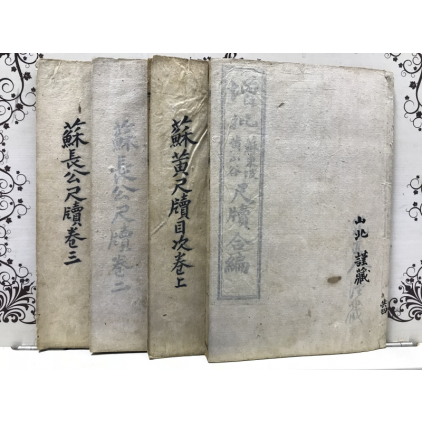 蘇長公尺牘卷三
蘇長公尺牘卷二
蘇黃尺牘目次卷上
蘇東坡
黃山谷
尺牘合編
山北 謹藏
共四